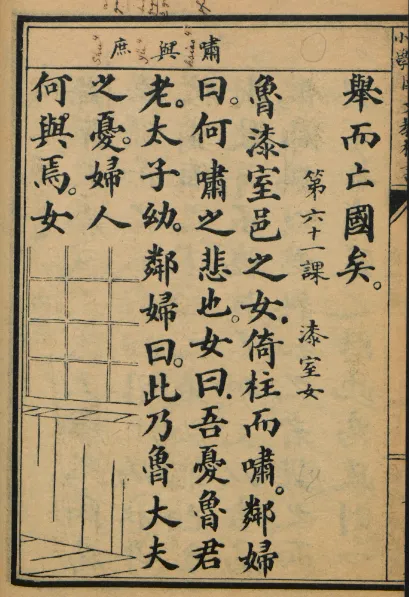 小學
嘯 與 庶
舉而亡國矣。
第六十一課 漆室女
魯漆室邑之女。倚柱而嘯。鄰婦
曰。何嘯之悲也。女曰。吾憂魯君
老。太子幼。鄰婦曰。此乃魯大夫
之憂。婦人
何與焉。女